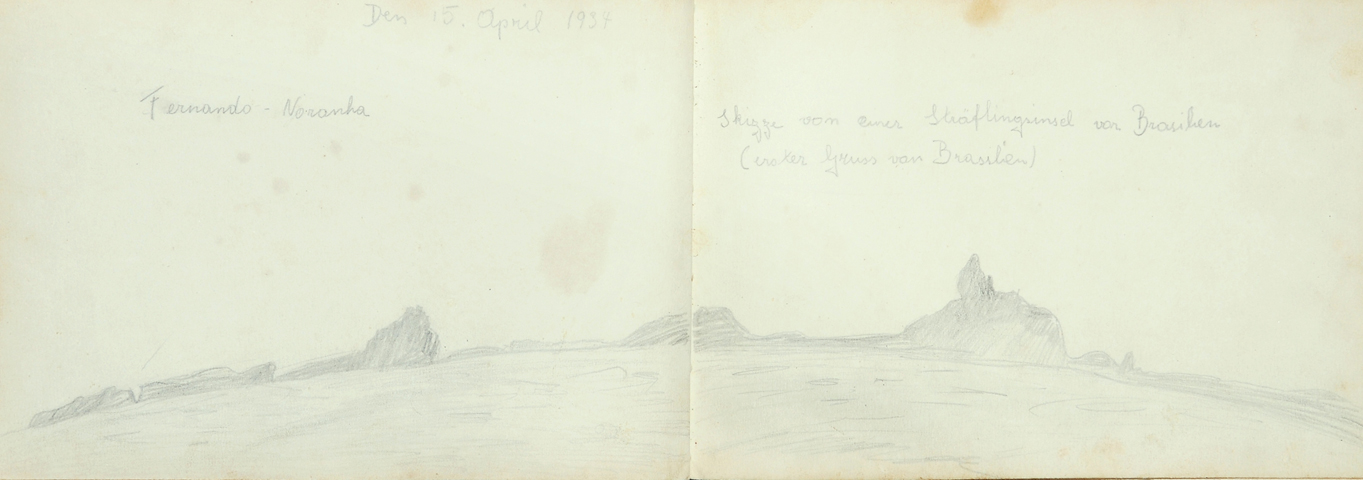 Den 15. April 1934
Fernando - Noranha
Skizze von einer Sträflingsinsel vor Brasilien
(erster Gruss von Brasilien)